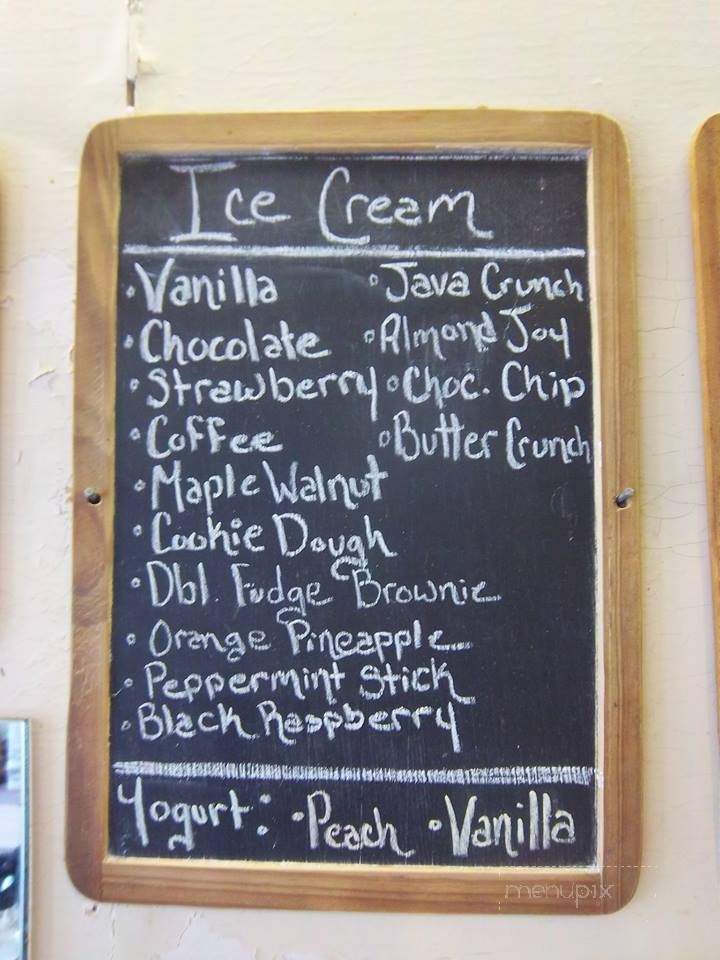 Ice Cream
• Vanilla
• Chocolate
• Strawberry
• Coffee
• Maple Walnut
• Cookie Dough
• Dbl. Fudge Brownie
• Orange Pineapple
• Peppermint Stick
• Black Raspberry
• Java Crunch
• Almond Joy
• Choc. Chip
• Butter Crunch
Yogurt: • Peach • Vanilla
menupix